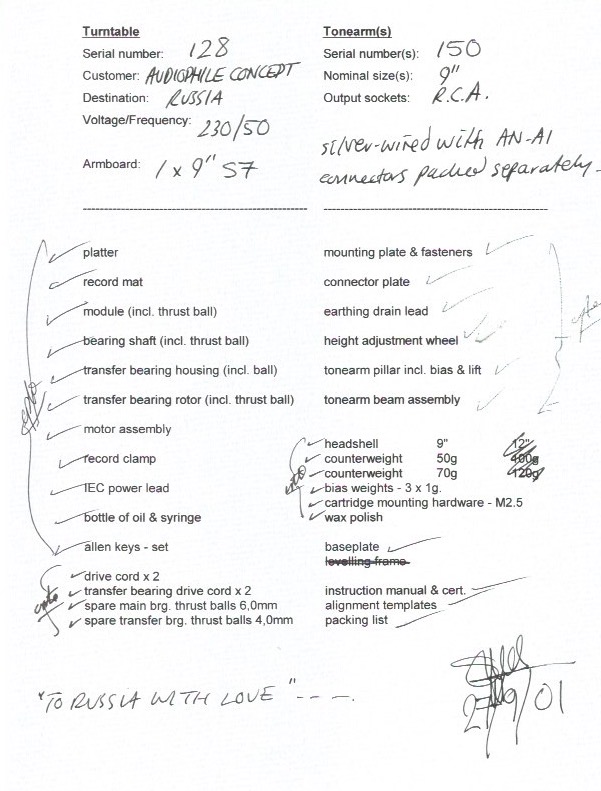 Turntable
Serial number: 128
Customer: AUDIOPHILE CONCEPT
Destination: RUSSIA
Voltage/Frequency: 230/50
Armboard: 1 x 9" S7
Tonearm(s)
Serial number(s): 150
Nominal size(s): 9"
Output sockets: R.C.A.
silver-wired with AN-A1
connectors packed separately-
platter
record mat
module (incl. thrust ball)
bearing shaft (incl. thrust ball)
transfer bearing housing (incl. ball)
transfer bearing rotor (incl. thrust ball)
motor assembly
record clamp
IEC power lead
bottle of oil & syringe
allen keys - set
drive cord x 2
transfer bearing drive cord x 2
spare main brg. thrust balls 6,0mm
spare transfer brg. thrust balls 4,0mm
mounting plate & fasteners
connector plate
earthing drain lead
height adjustment wheel
tonearm pillar incl. bias & lift
tonearm beam assembly
headshell 9" 12"
counterweight 50g 100g
counterweight 70g 120g
bias weights - 3 x 1g.
cartridge mounting hardware - M2.5
wax polish
baseplate
levelling frame
instruction manual & cert.
alignment templates
packing list
"TO RUSSIA WITH LOVE" ---.
27/9/01